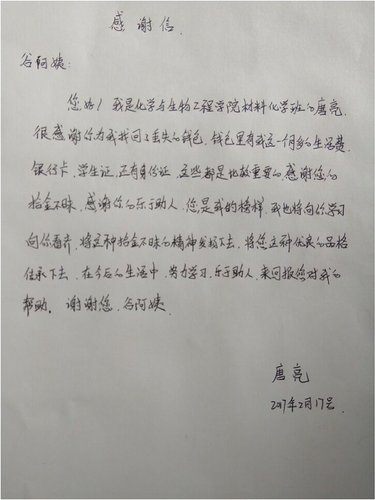 感谢信
谷阿姨:
您好！我是化学与生物工程学院材料化学班的唐亮
很感谢你为我找回了丢失的钱包，钱包里有我这一个月的生活费
银行卡、学生证，还有身份证，这些都是比较重要的，感谢您的
拾金不昧，感谢你的乐于助人，您是我的榜样，我也将向你学习
向你看齐，将这种拾金不昧的精神发扬下去，将您这种优良的品格
传承下去，在今后的生活中，努力学习，乐于助人，来回报您对我的
帮助。谢谢您，谷阿姨。
唐亮
2017年2月17号.